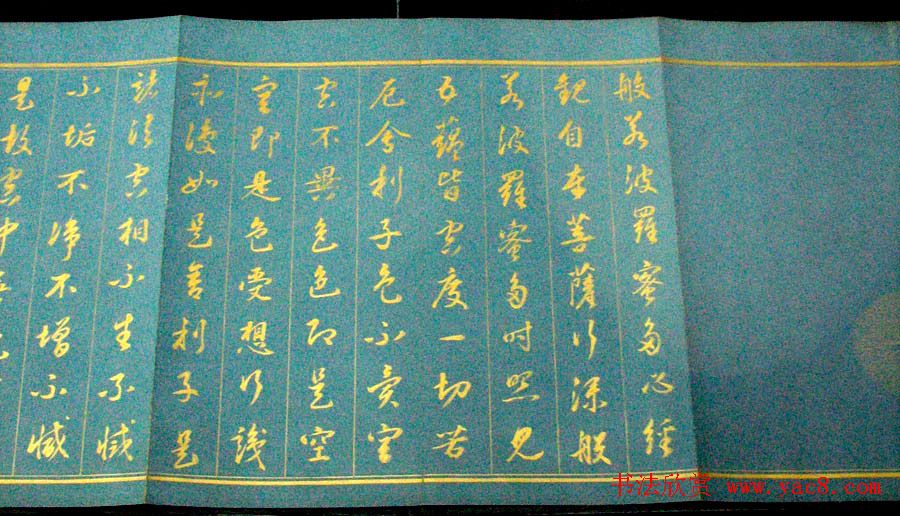 般若波羅蜜多心經
觀自在菩薩行深般
若波羅蜜多時照見
五蘊皆空度一切苦
厄舍利子色不異空
空不異色色即是空
空即是色受想行識
亦復如是舍利子是
諸法空相不生不滅
不垢不淨不增不減
是故空中無色
书法欣赏 www.yac8.com